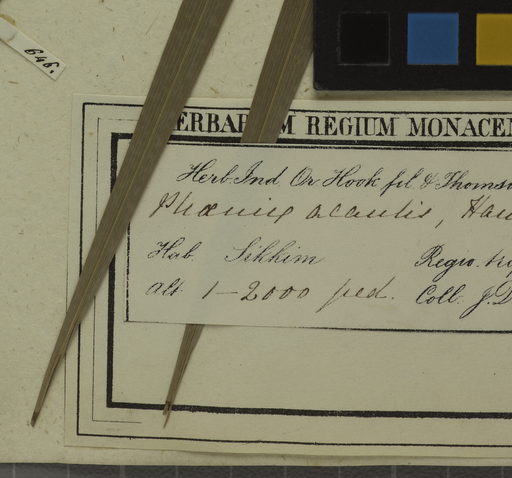 646.
HERBARIUM REGIUM MONACEN
Herb. Ind. Or. Hook. fil. & Thomso
Phœnix acaulis, Ham
Hab. Sikkim Regio. trop
Alt. 1–2000 ped. Coll. J.D